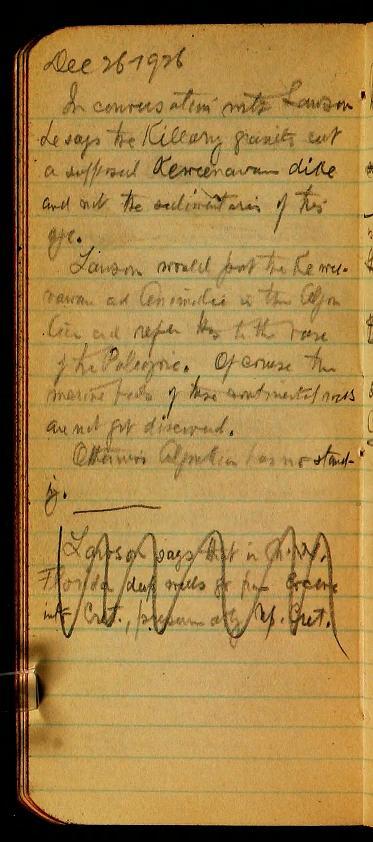 Dec 26 1926
In conversation with Lawson
he says the Killarny granites cut
a supposed Keweenawan dike
and not the sedimentaries of this
age.
Lawson would put the Kewee-
nawan and Animikie in the Algon
kian and refer this to the base
of the Paleozoic. Of course the
marine facies of these continental rocks
are not yet discovered.
Otherwise Algonkian has no stand-
ing.
Lawson says that in N.W.
Florida deep wells go from Eocene
into Cret., presumably Up. Cret.